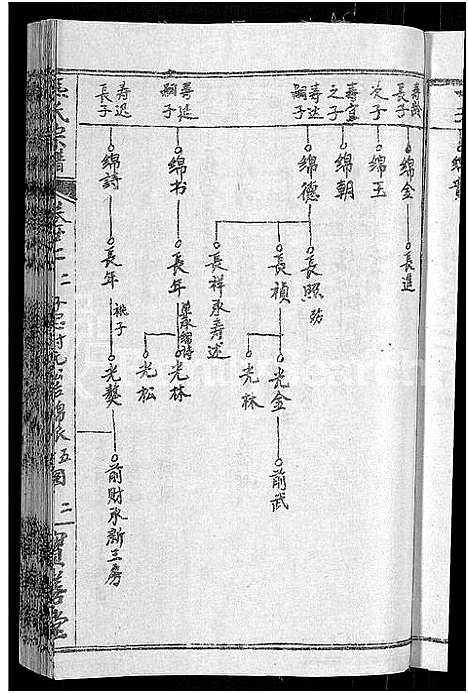 長子
綿金
長進
次子
綿玉
壽宜
之子
綿朝
壽述
嗣子
綿德
長照
殇
長禎
光金
前武
光林
長祥承壽述
壽延
嗣子
綿书
長年
兼承綿詩
光林
光松
壽迅
長子
綿詩
長年
祧子
光獒
前財承新三房
氏宗譜
五图
二
寶善堂